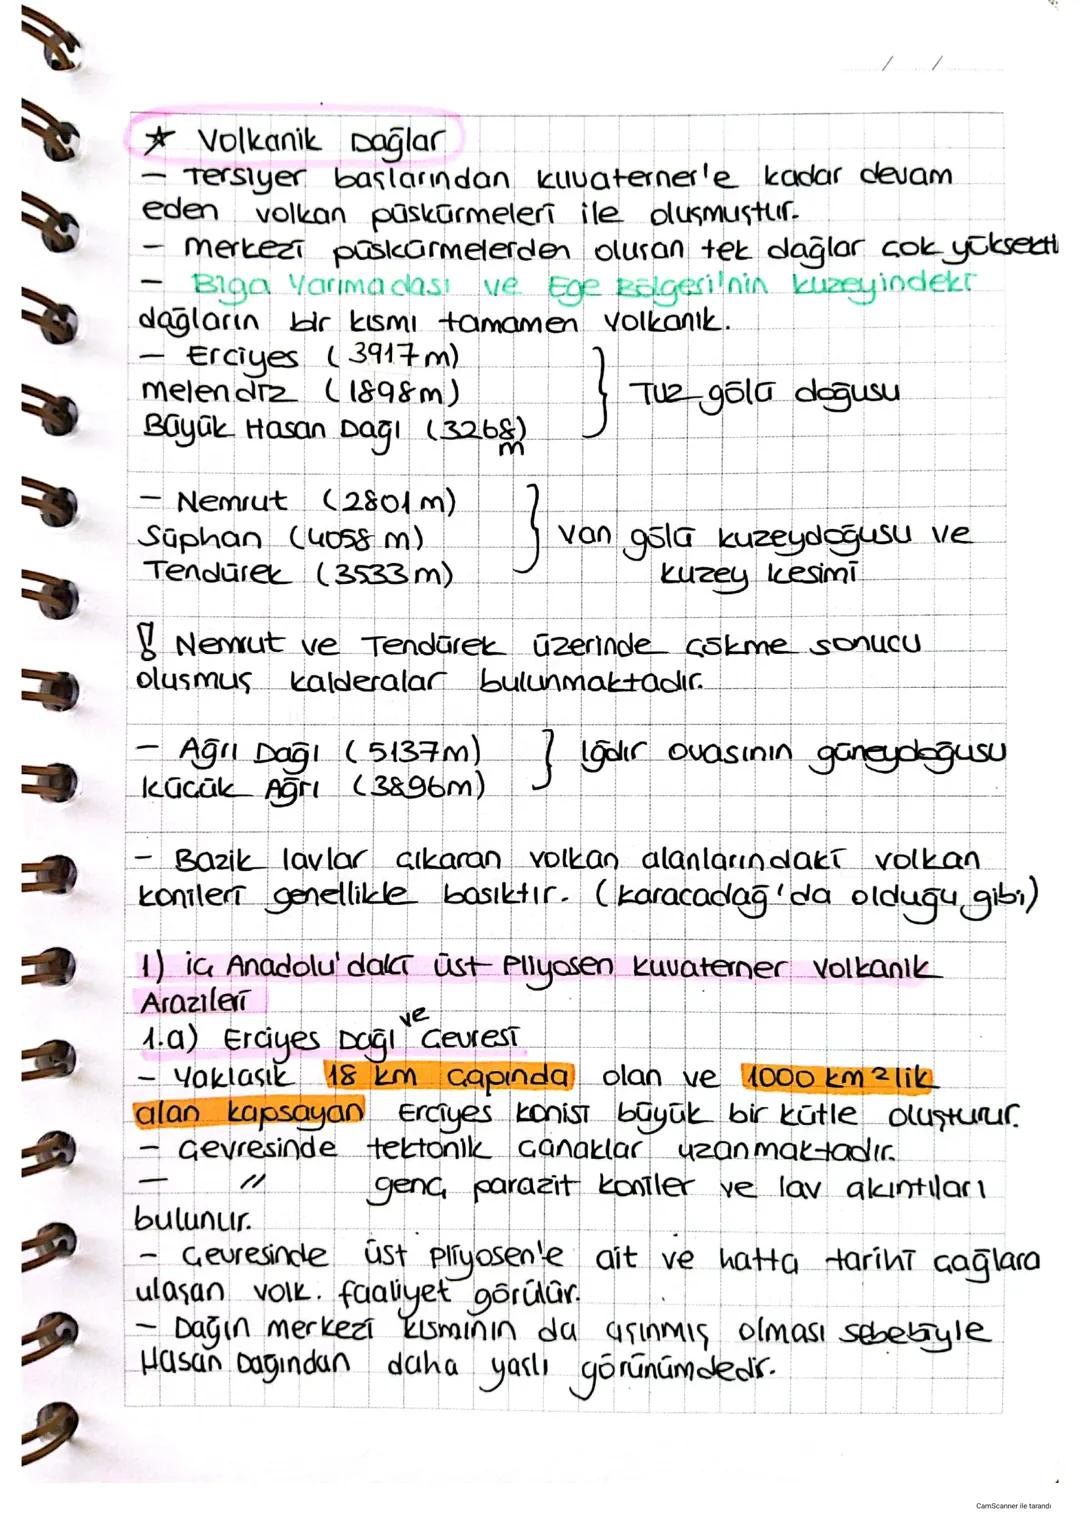 / /
☆ Volkanik Dağlar
- Tersiyer başlarından kuvaterner'e kadar devam
eden volkan püskürmeleri ile oluşmuştur.
- merkezi püskürmelerden oluşan tek dağlar çok yüksekti
- Biga Yarımadası ve Ege Bölgesi'nin kuzeyindeki
dağların bir kısmı tamamen volkanik.
- Erciyes (3917m)
melendiz (1898m) } Tuz gölü doğusu
Büyük Hasan Dağı (3268)
m
- Nemrut (2801m)
Süphan (4058 m) } Van gölü kuzeydoğusu ve
Tendürek (3533m) kuzey kesimi
! Nemrut ve Tendürek üzerinde çökme sonucu
oluşmuş kalderalar bulunmaktadır.
- Ağrı Dağı (5137m) } Iğdır ovasının güneydoğusu
küçük Ağrı (3896m)
- Bazik lavlar çıkaran volkan alanlarındaki volkan
konileri genellikle basıktır. (karacadağ'da olduğu gibi)
1) iç Anadolu'daki üst Pliyosen kuvaterner volkanik
Arazileri
1.a) Erciyes Dağı ve Çevresi
- Yaklaşık 18 km çapında olan ve 1000 km2lik
alan kapsayan Erciyes konisi büyük bir kütle oluşturur.
- Çevresinde tektonik çanaklar uzanmaktadır.
- " genç parazit koniler ve lav akıntıları
bulunur.
- Çevresinde üst pliyosen'e ait ve hatta tarihi çağlara
ulaşan volk. faaliyet görülür.
- Dağın merkezi kısmının da aşınmış olması sebebiyle
Hasan Dağından daha yaşlı görünümdedir.
CamScanner ile tarandı